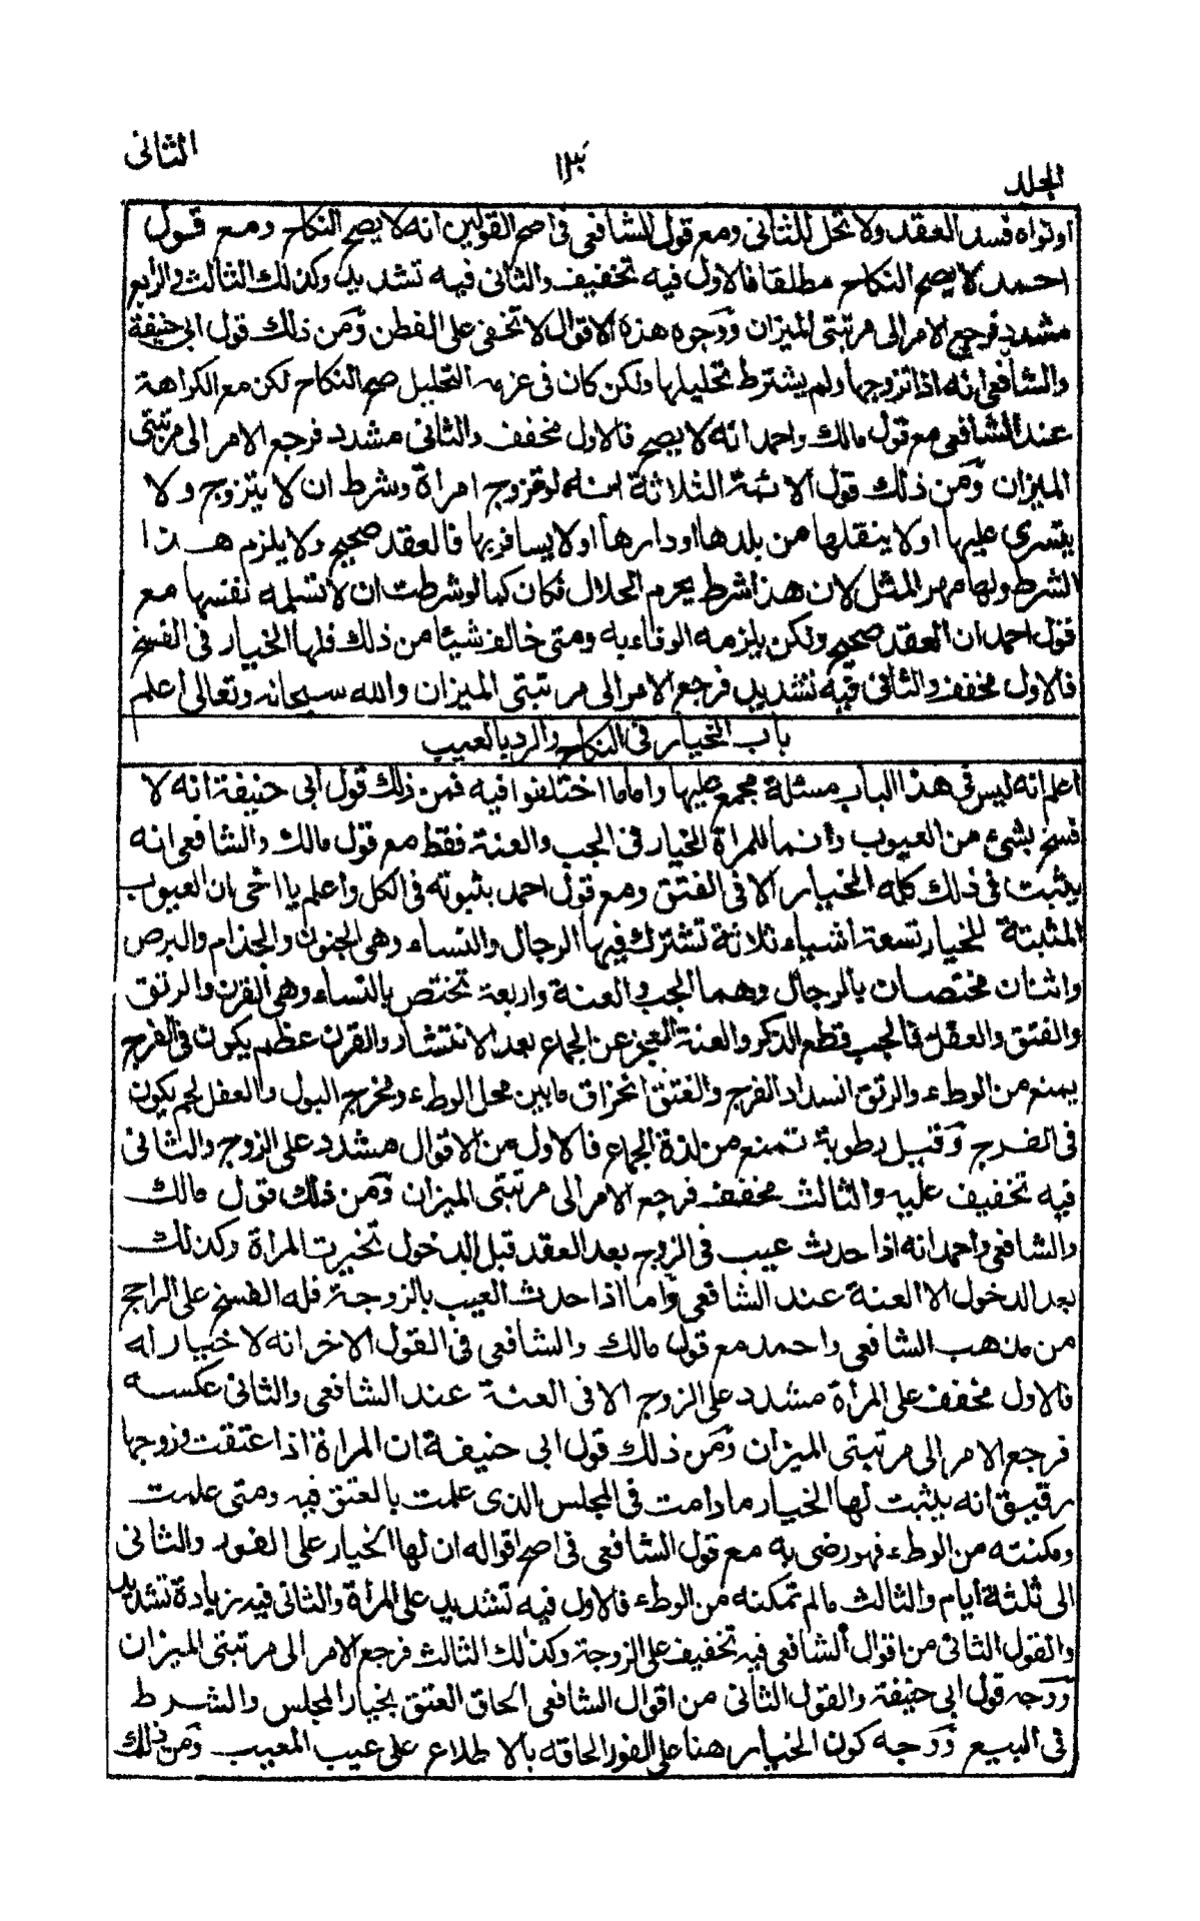 الجلد
١٣٠
الثانى
او نواه فسد العقد ولا تحل للثانى ومع قول للشافعى فى اصح القولين انه لا يصح النكاح ومع قول
احمد لا يصح النكاح مطلقا فالاول فيه تخفيف والثانى فيه تشديد وكذلك الثالث والرابع
مشدد فرجع الامر الى مرتبتى الميزان ووجوه هذه الاقوال لا تخفى على الفطن ومن ذلك قول ابى حنيفة
والشافعى انه اذا تزوجها ولم يشترط تحليلها ولكن كان فى عزمه التحليل صح النكاح لكن مع الكراهة
عند الشافعى مع قول مالك واحمد انه لا يصح فالاول مخفف والثانى مشدد فرجع الامر الى مرتبتى
الميزان ومن ذلك قول الائمة الثلاثة انه لو تزوج امرأة وشرط ان لا يتزوج ولا
يتسرى عليها او لا ينقلها من بلدها او دارها او لا يسافر بها فالعقد صحيح ولا يلزم هذا
الشرط ولها مهر المثل لان هذا شرط يحرم الحلال فكان كما لو شرطت ان لا تسلمه نفسها مع
قول احمد ان العقد صحيح ولكن يلزمه الوفاء به ومتى خالف شيئا من ذلك فلها الخيار فى الفسخ
فالاول مخفف والثانى فيه تشديد فرجع الامر الى مرتبتى الميزان والله سبحانه وتعالى اعلم
باب الخيار فى النكاح والرد بالعيب
اعلم انه ليس فى هذا الباب مسئلة مجمع عليها واما ما اختلفوا فيه فمن ذلك قول ابى حنيفة انه لا
فسخ بشئ من العيوب وانما للمرأة الخيار فى الجب والعنة فقط مع قول مالك والشافعى انه
يثبت فى ذلك كله الخيار الا فى الفتق ومع قول احمد بثبوته فى الكل واعلم يا اخى ان العيوب
المثبتة للخيار تسعة اشياء ثلاثة تشترك فيها الرجال والنساء وهى الجنون والجذام والبرص
واثنان مختصان بالرجال وهما الجب والعنة واربعة تختص بالنساء وهى القرن والرتق
والفتق والعفل فالجب قطع الذكر والعنة العجز عن الجماع بعد الانتشار والقرن عظم يكون فى الفرج
يمنع من الوطء والرتق انسداد الفرج والفتق انخراق ما بين محل الوطء ومخرج البول والعفل لحم يكون
فى الفرج وقيل رطوبة تمنع من لذة الجماع فالاول من الاقوال مشدد على الزوج والثانى
فيه تخفيف عليه والثالث مخفف فرجع الامر الى مرتبتى الميزان ومن ذلك قول مالك
والشافعى واحمد انه اذا حدث عيب فى الزوج بعد العقد قبل الدخول تخيرت المرأة وكذلك
بعد الدخول الا العنة عند الشافعى واما اذا حدث العيب بالزوجة فله الفسخ على الراجح
من مذهب الشافعى واحمد مع قول مالك والشافعى فى القول الاخر انه لا خيار له
فالاول مخفف على المرأة مشدد على الزوج الا فى العنة عند الشافعى والثانى عكسه
فرجع الامر الى مرتبتى الميزان ومن ذلك قول ابى حنيفة ان المراة اذا عتقت وزوجها
رقيق انه يثبت لها الخيار ما دامت فى المجلس الذى علمت بالعتق فيه ومتى علمت
ومكنته من الوطء فهو رضى به مع قول الشافعى فى اصح اقواله ان لها الخيار على الفور والثانى
الى ثلثة ايام والثالث مالم تمكنه من الوطء فالاول فيه تشديد على المرأة والثانى فيه زيادة تشديد
والقول الثانى من اقوال الشافعى فيه تخفيف على الزوجة وكذلك الثالث فرجع الامر الى مرتبتى الميزان
ووجه قول ابى حنيفة والقول الثانى من اقوال الشافعى الحاق العتق بخيار المجلس والشرط
فى البيع ووجه كون الخيار هنا على الفور الحاقه بالاطلاع على عيب المعيب ومن ذلك